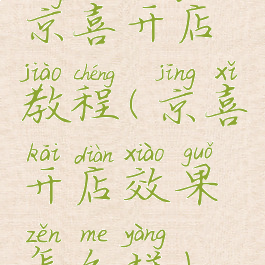 京喜开店
jiào chéng jīng xǐ
教程(京喜
kāi diàn xiào guǒ
开店效果
zěn me yàng
怎么样)